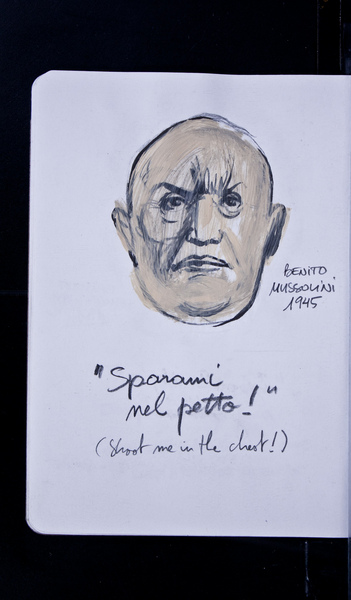 BENITO
MUSSOLINI
1945
"Sparami
nel petto!"
(Shoot me in the chest!)